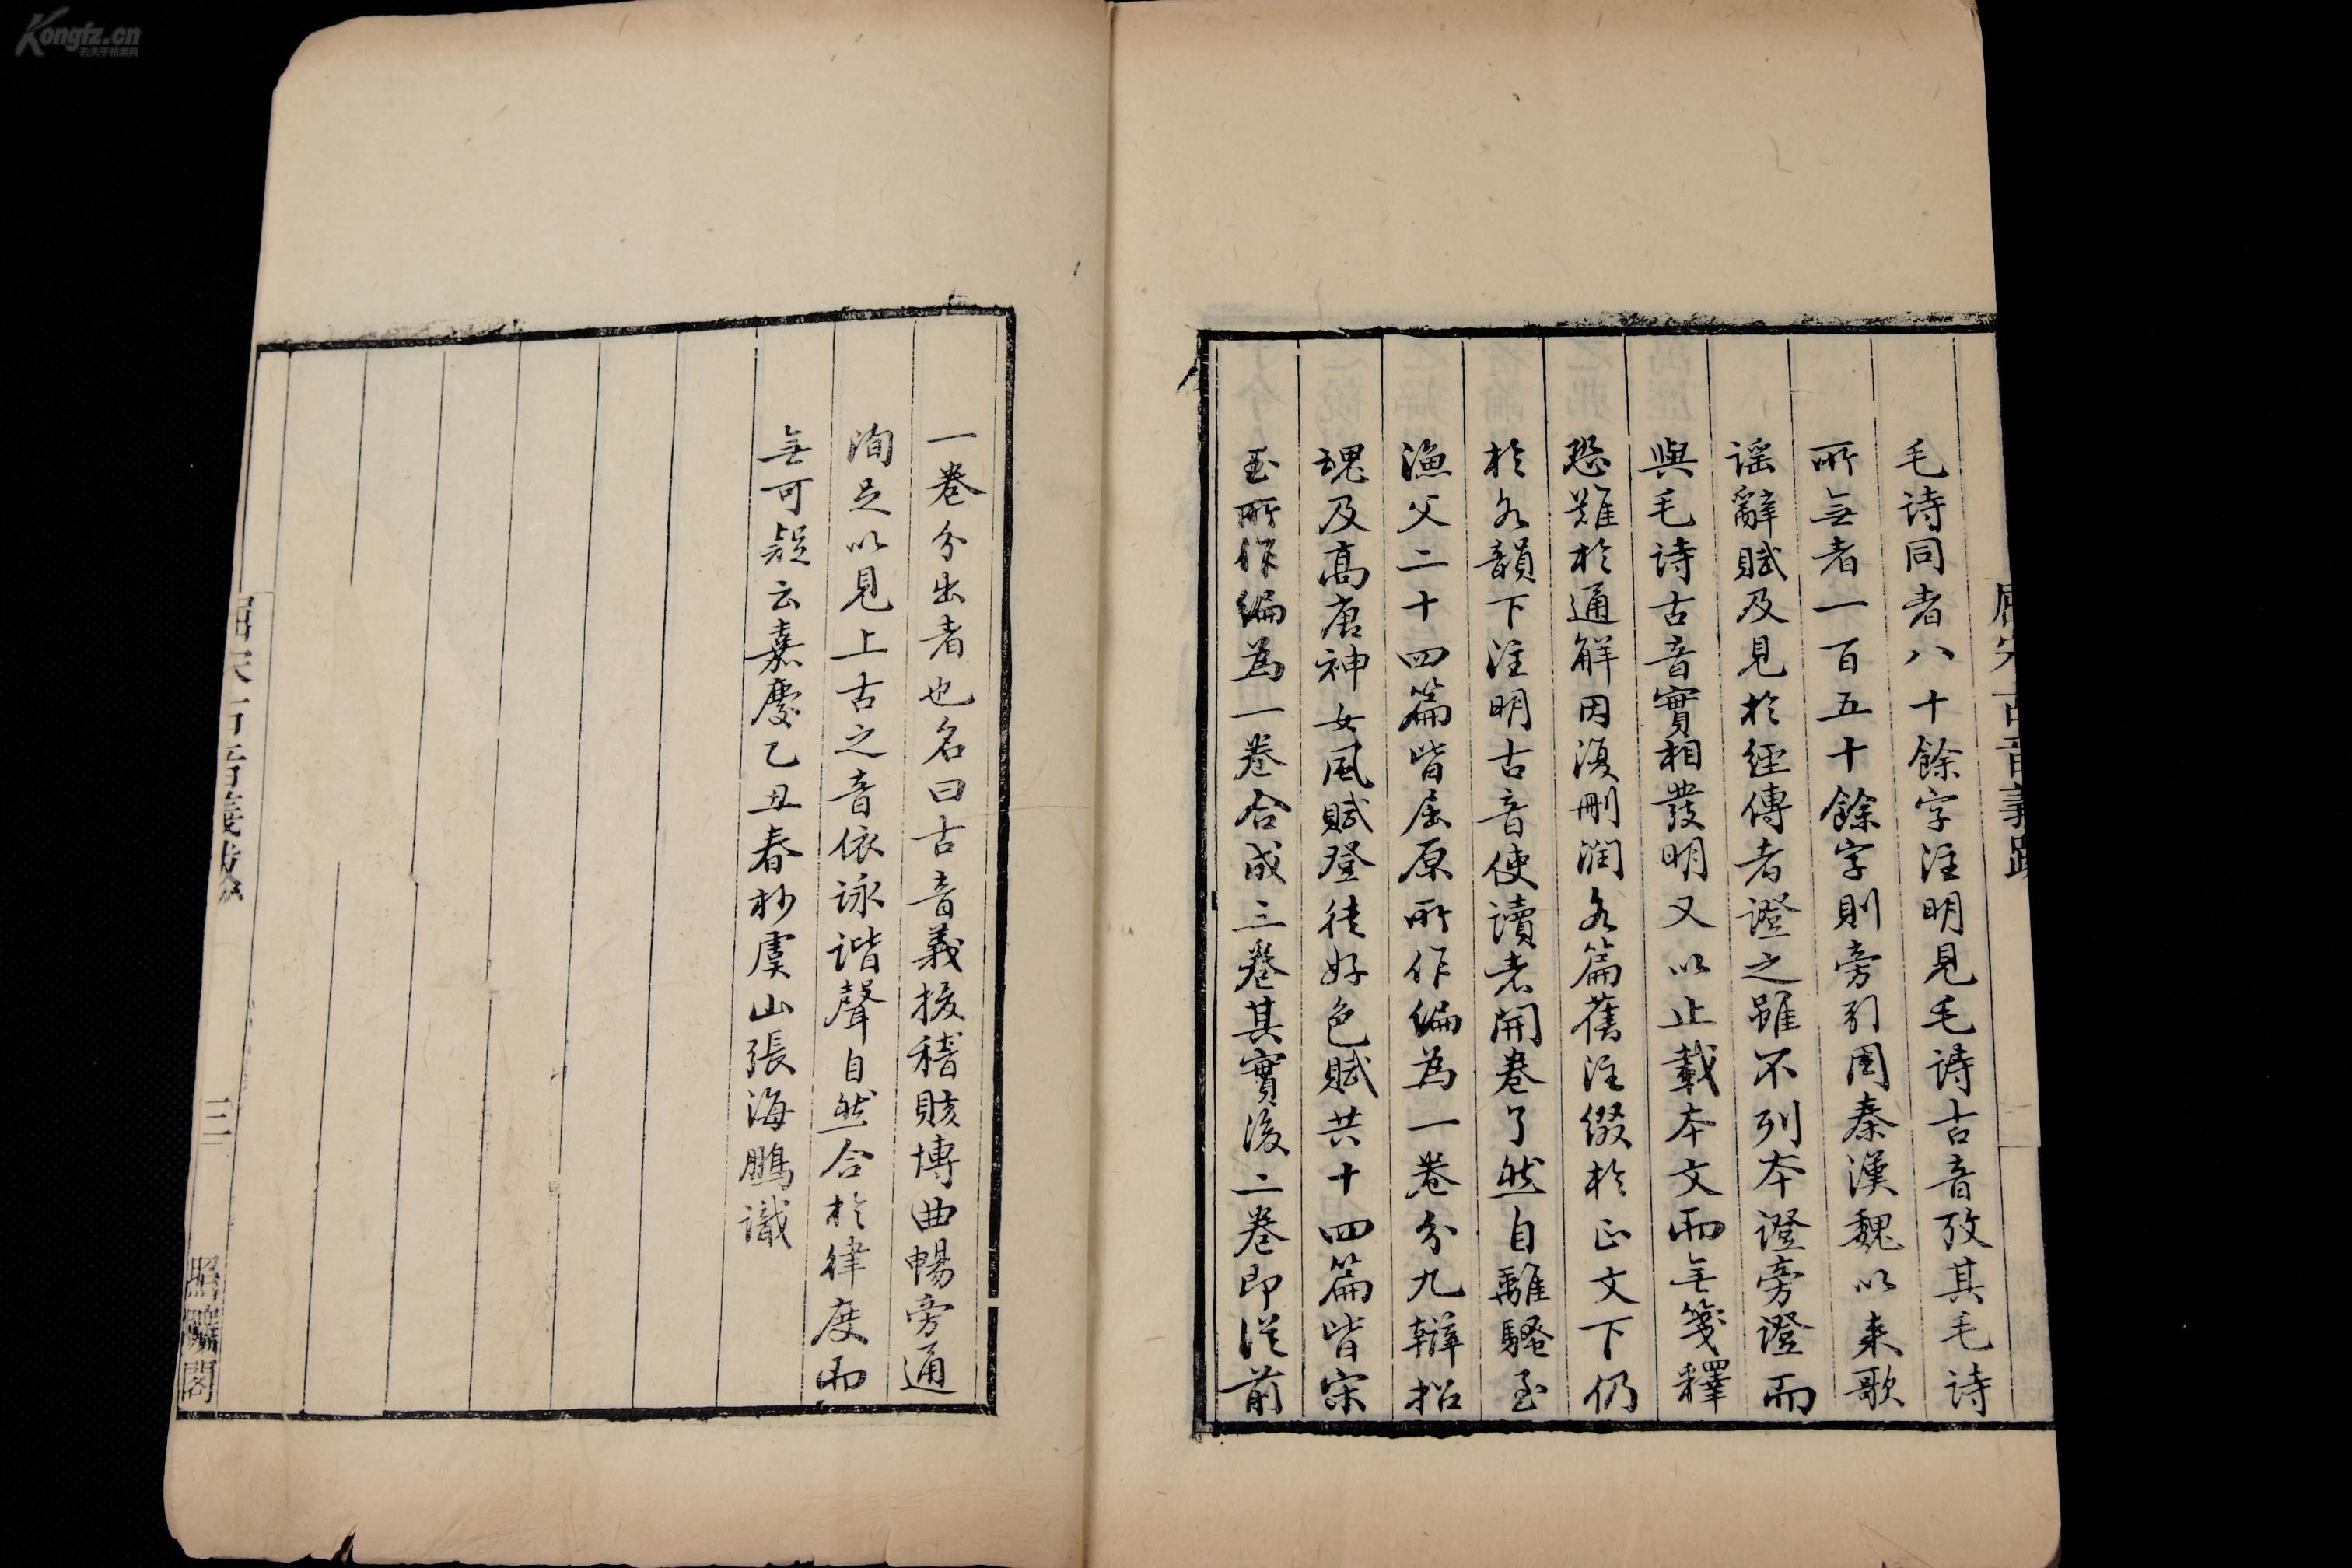 毛詩同者八十餘字注明見毛詩古音攷其毛詩
所無者一百五十餘字則旁引周秦漢魏以来歌
謡辭賦及見於經傳者證之雖不列本證旁證而
與毛詩古音實相發明又以止載本文而無箋釋
恐難於通解因復刪潤各篇舊注綴於正文下仍
於各韻下注明古音使讀者開卷了然自離騷至
漁父二十四篇皆屈原所作編為一卷分九辯招
魂及高唐神女風賦登徒好色賦共十四篇皆宋
玉所作編為一卷合成三卷其實後二卷即從前
一卷分出者也名曰古音義援稽賅博曲暢旁通
洵足以見上古之音依詠諧聲自然合於律度而
無可疑云嘉慶乙丑春杪虞山張海鵬識
三
照曠閣
Kongfz.cn
孔夫子拍卖网